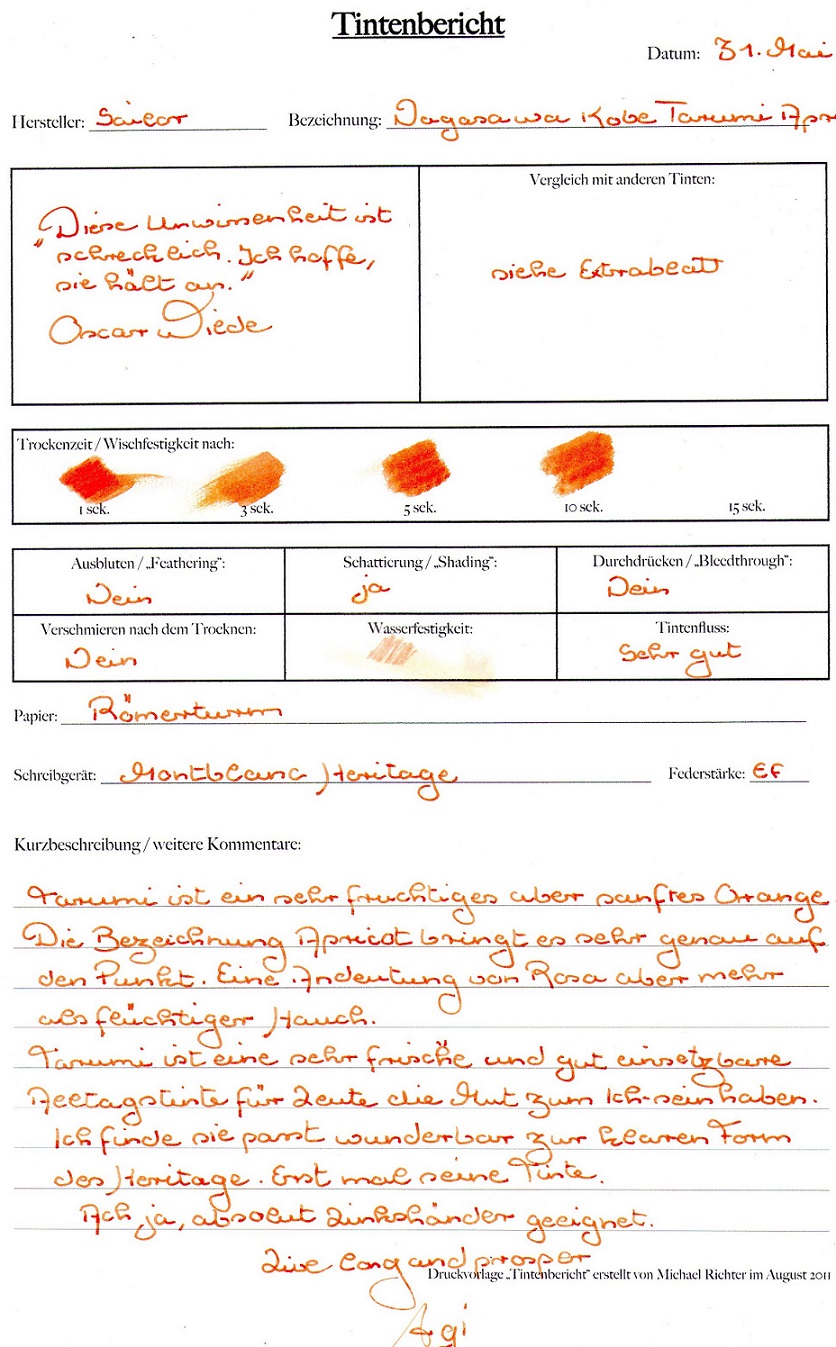 Tintenbericht
Datum: 31. Mai
Hersteller: Sailor Bezeichnung: Nagasawa Kobe Tarumi Apr
"Diese Unwissenheit ist
schrecklich. Ich hoffe,
sie hält an."
Oscar Wilde
Vergleich mit anderen Tinten:
siehe Extrablatt
Trockenzeit / Wischfestigkeit nach:
1 sek. 3 sek. 5 sek. 10 sek. 15 sek.
Ausbluten / „Feathering": Schattierung / „Shading": Durchdrücken / „Bleedthrough":
Nein ja Nein
Verschmieren nach dem Trocknen: Wasserfestigkeit: Tintenfluss:
Nein Sehr gut
Papier: Römerturm
Schreibgerät: Montblanc Heritage Federstärke: EF
Kurzbeschreibung / weitere Kommentare:
Tarumi ist ein sehr fruchtiges aber sanftes Orange
Die Bezeichnung Apricot bringt es sehr genau auf
den Punkt. Eine Andeutung von Rosa aber mehr
als flüchtiger Hauch.
Tarumi ist eine sehr frische und gut einsetzbare
Alltagstinte für Leute die Mut zum Ich-sein haben.
Ich finde sie passt wunderbar zur klaren Form
des Heritage. Erst mal seine Tinte.
Ach ja, absolut Linkshänder geeignet.
Live long and prosper
Druckvorlage „Tintenbericht" erstellt von Michael Richter im August 2011
Agi